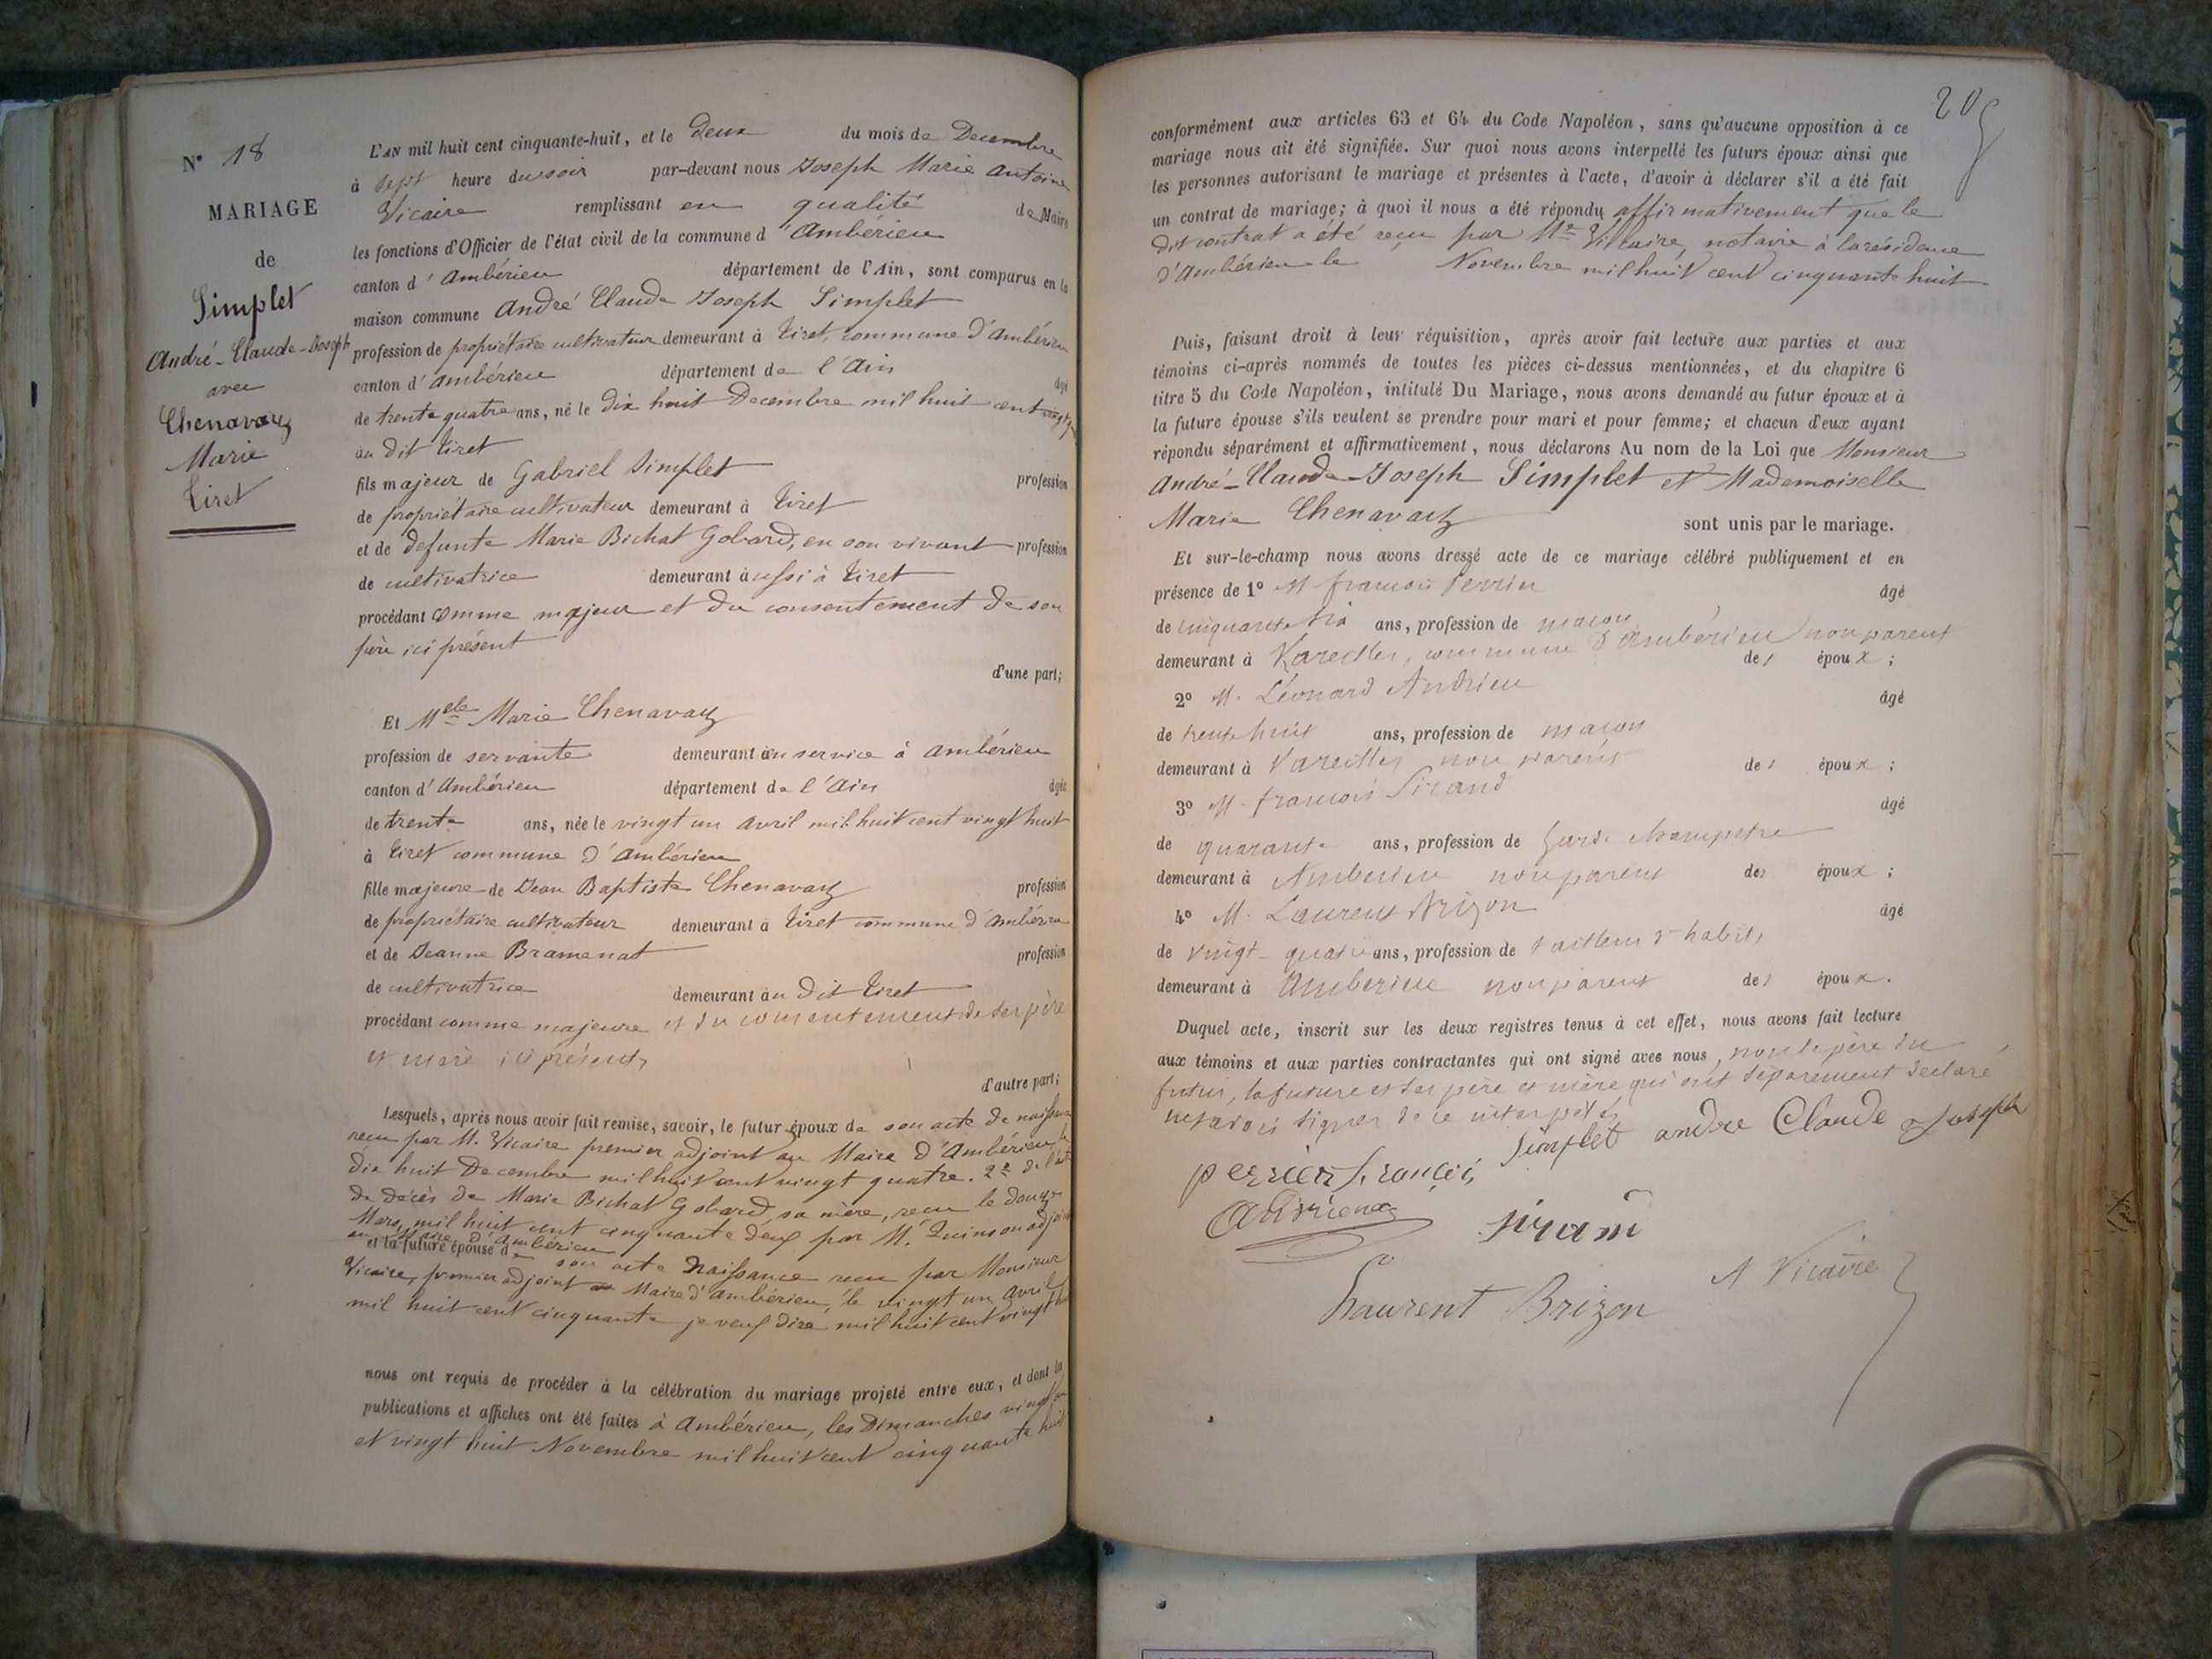 N° 18
MARIAGE
de
Simplet
André-Claude-Joseph
avec
Chenavaz
Marie
Tiret
L'AN mil huit cent cinquante-huit, et le deux du mois de Decembre
à sept heure du soir par-devant nous Joseph Marie Antoine
Vicaire remplissant en qualité de Maire
les fonctions d'Officier de l'état civil de la commune d'Ambérieu
canton d'Ambérieu département de l'Ain, sont comparus en la
maison commune André Claude Joseph Simplet
profession de propriétaire cultivateur demeurant à Tiret, commune d'Ambérieu
canton d'Ambérieu département de l'Ain âgé
de trente quatre ans, né le dix huit Decembre mil huit cent
au dit Tiret
fils majeur de Gabriel Simplet profession
de propriétaire cultivateur demeurant à Tiret
et de defunte Marie Bichat Gobard, en son vivant profession
de cultivatrice demeurant aussi à Tiret
procédant comme majeur et du consentement de son
père ici présent
d'une part;
Et Melle Marie Chenavaz
profession de servante demeurant en service à Ambérieu
canton d'Ambérieu département de l'Ain âgée
de trente ans, née le vingt un avril mil huit cent vingt huit
à Tiret commune d'Ambérieu
fille majeure de Jean Baptiste Chenavaz profession
de propriétaire cultivateur demeurant à Tiret commune d'Ambérieu
et de Jeanne Bramenat profession
de cultivatrice demeurant au dit Tiret
procédant comme majeure et du consentement de ses père
et mère ici présents
d'autre part;
Lesquels, après nous avoir fait remise, savoir, le futur époux de son acte de naissance
reçu par M. Vicaire premier adjoint au Maire d'Ambérieu, le
dix huit Decembre mil huit cent vingt quatre. 2° de l'acte
de décès de Marie Bichat Gobard, sa mère, reçu le douze
Mars, mil huit cent cinquante deux par M. Quinson adjoint
au Maire d'Ambérieu
et la future épouse de son acte Naissance reçu par Monsieur
Vicaire, premier adjoint au Maire d'Ambérieu, le vingt un avril
mil huit cent cinquante je veux dire mil huit cent vingt huit
nous ont requis de procéder à la célébration du mariage projeté entre eux, et dont les
publications et affiches ont été faites à Ambérieu, les Dimanches vingt un
et vingt huit Novembre mil huit cent cinquante huit
205
conformément aux articles 63 et 64 du Code Napoléon, sans qu'aucune opposition à ce
mariage nous ait été signifiée. Sur quoi nous avons interpellé les futurs époux ainsi que
les personnes autorisant le mariage et présentes à l'acte, d'avoir à déclarer s'il a été fait
un contrat de mariage; à quoi il nous a été répondu affirmativement que le
dit contrat a été reçu par Me Vicaire, notaire à la résidence
d'Ambérieu le Novembre mil huit cent cinquante huit
Puis, faisant droit à leur réquisition, après avoir fait lecture aux parties et aux
témoins ci-après nommés de toutes les pièces ci-dessus mentionnées, et du chapitre 6
titre 5 du Code Napoléon, intitulé Du Mariage, nous avons demandé au futur époux et à
la future épouse s'ils veulent se prendre pour mari et pour femme; et chacun d'eux ayant
répondu séparément et affirmativement, nous déclarons Au nom de la Loi que Monsieur
André-Claude-Joseph Simplet et Mademoiselle
Marie Chenavaz sont unis par le mariage.
Et sur-le-champ nous avons dressé acte de ce mariage célébré publiquement et en
présence de 1° M françois Perrier âgé
de cinquante six ans, profession de maçon
demeurant à Vareilles, commune d'Ambérieu non parent des époux;
2° M. Léonard Andrieu âgé
de trente huit ans, profession de maçon
demeurant à Vareilles non parent des époux;
3° M. françois Sirand âgé
de quarante ans, profession de garde champêtre
demeurant à Ambérieu non parent des époux;
4° M. Laurent Brizon âgé
de vingt-quatre ans, profession de tailleur d'habits
demeurant à Ambérieu non parent des époux.
Duquel acte, inscrit sur les deux registres tenus à cet effet, nous avons fait lecture
aux témoins et aux parties contractantes qui ont signé avec nous, non le père du
futur, la future et ses père et mère qui ont séparément déclaré
ne savoir signer de ce interpelés
Simplet andre Claude Joseph
perrier françois
Andrieux
Sirand
Laurent Brizon
A Vicaire